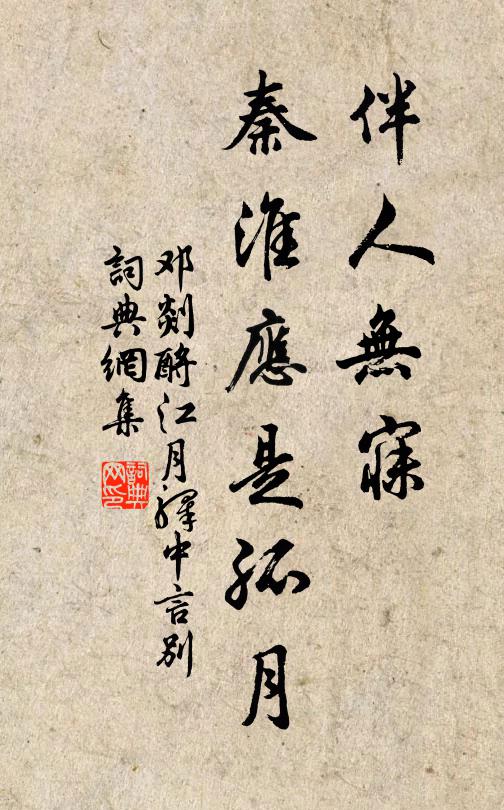 伴人無寐
秦淮應是孤月
邓剡酹江月·驛中言别
詞典網集
詞典網印